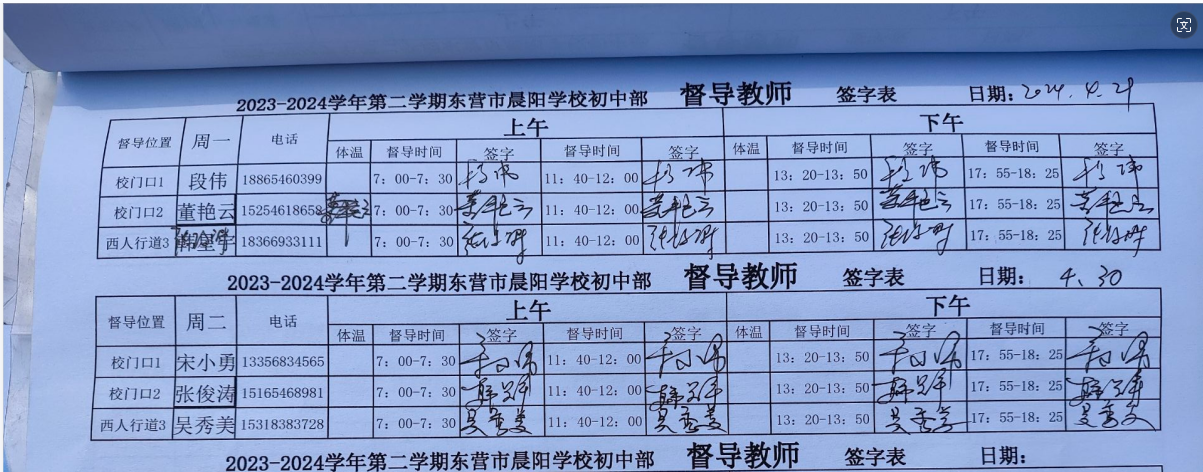 2023-2024学年第二学期东营市晨阳学校初中部 督导教师 签字表 日期: 2024.4.29
督导位置 周一 电话 上午 下午
体温 督导时间 签字 督导时间 签字 体温 督导时间 签字 督导时间 签字
校门口1 段伟 18865460399 7: 00-7: 30 段伟 11: 40-12: 00 段伟 13: 20-13: 50 段伟 17: 55-18: 25 段伟
校门口2 董艳云 15254618658 7: 00-7: 30 董艳云 11: 40-12: 00 董艳云 13: 20-13: 50 董艳云 17: 55-18: 25 董艳云
西人行道3 18366933111 7: 00-7: 30 11: 40-12: 00 13: 20-13: 50 17: 55-18: 25
2023-2024学年第二学期东营市晨阳学校初中部 督导教师 签字表 日期: 4、30
督导位置 周二 电话 上午 下午
体温 督导时间 签字 督导时间 签字 体温 督导时间 签字 督导时间 签字
校门口1 宋小勇 13356834565 7: 00-7: 30 11: 40-12: 00 13: 20-13: 50 17: 55-18: 25
校门口2 张俊涛 15165468981 7: 00-7: 30 11: 40-12: 00 13: 20-13: 50 17: 55-18: 25
西人行道3 吴秀美 15318383728 7: 00-7: 30 吴秀美 11: 40-12: 00 吴秀美 13: 20-13: 50 吴秀美 17: 55-18: 25 吴秀美
2023-2024学年第二学期东营市晨阳学校初中部 督导教师 签字表 日期: